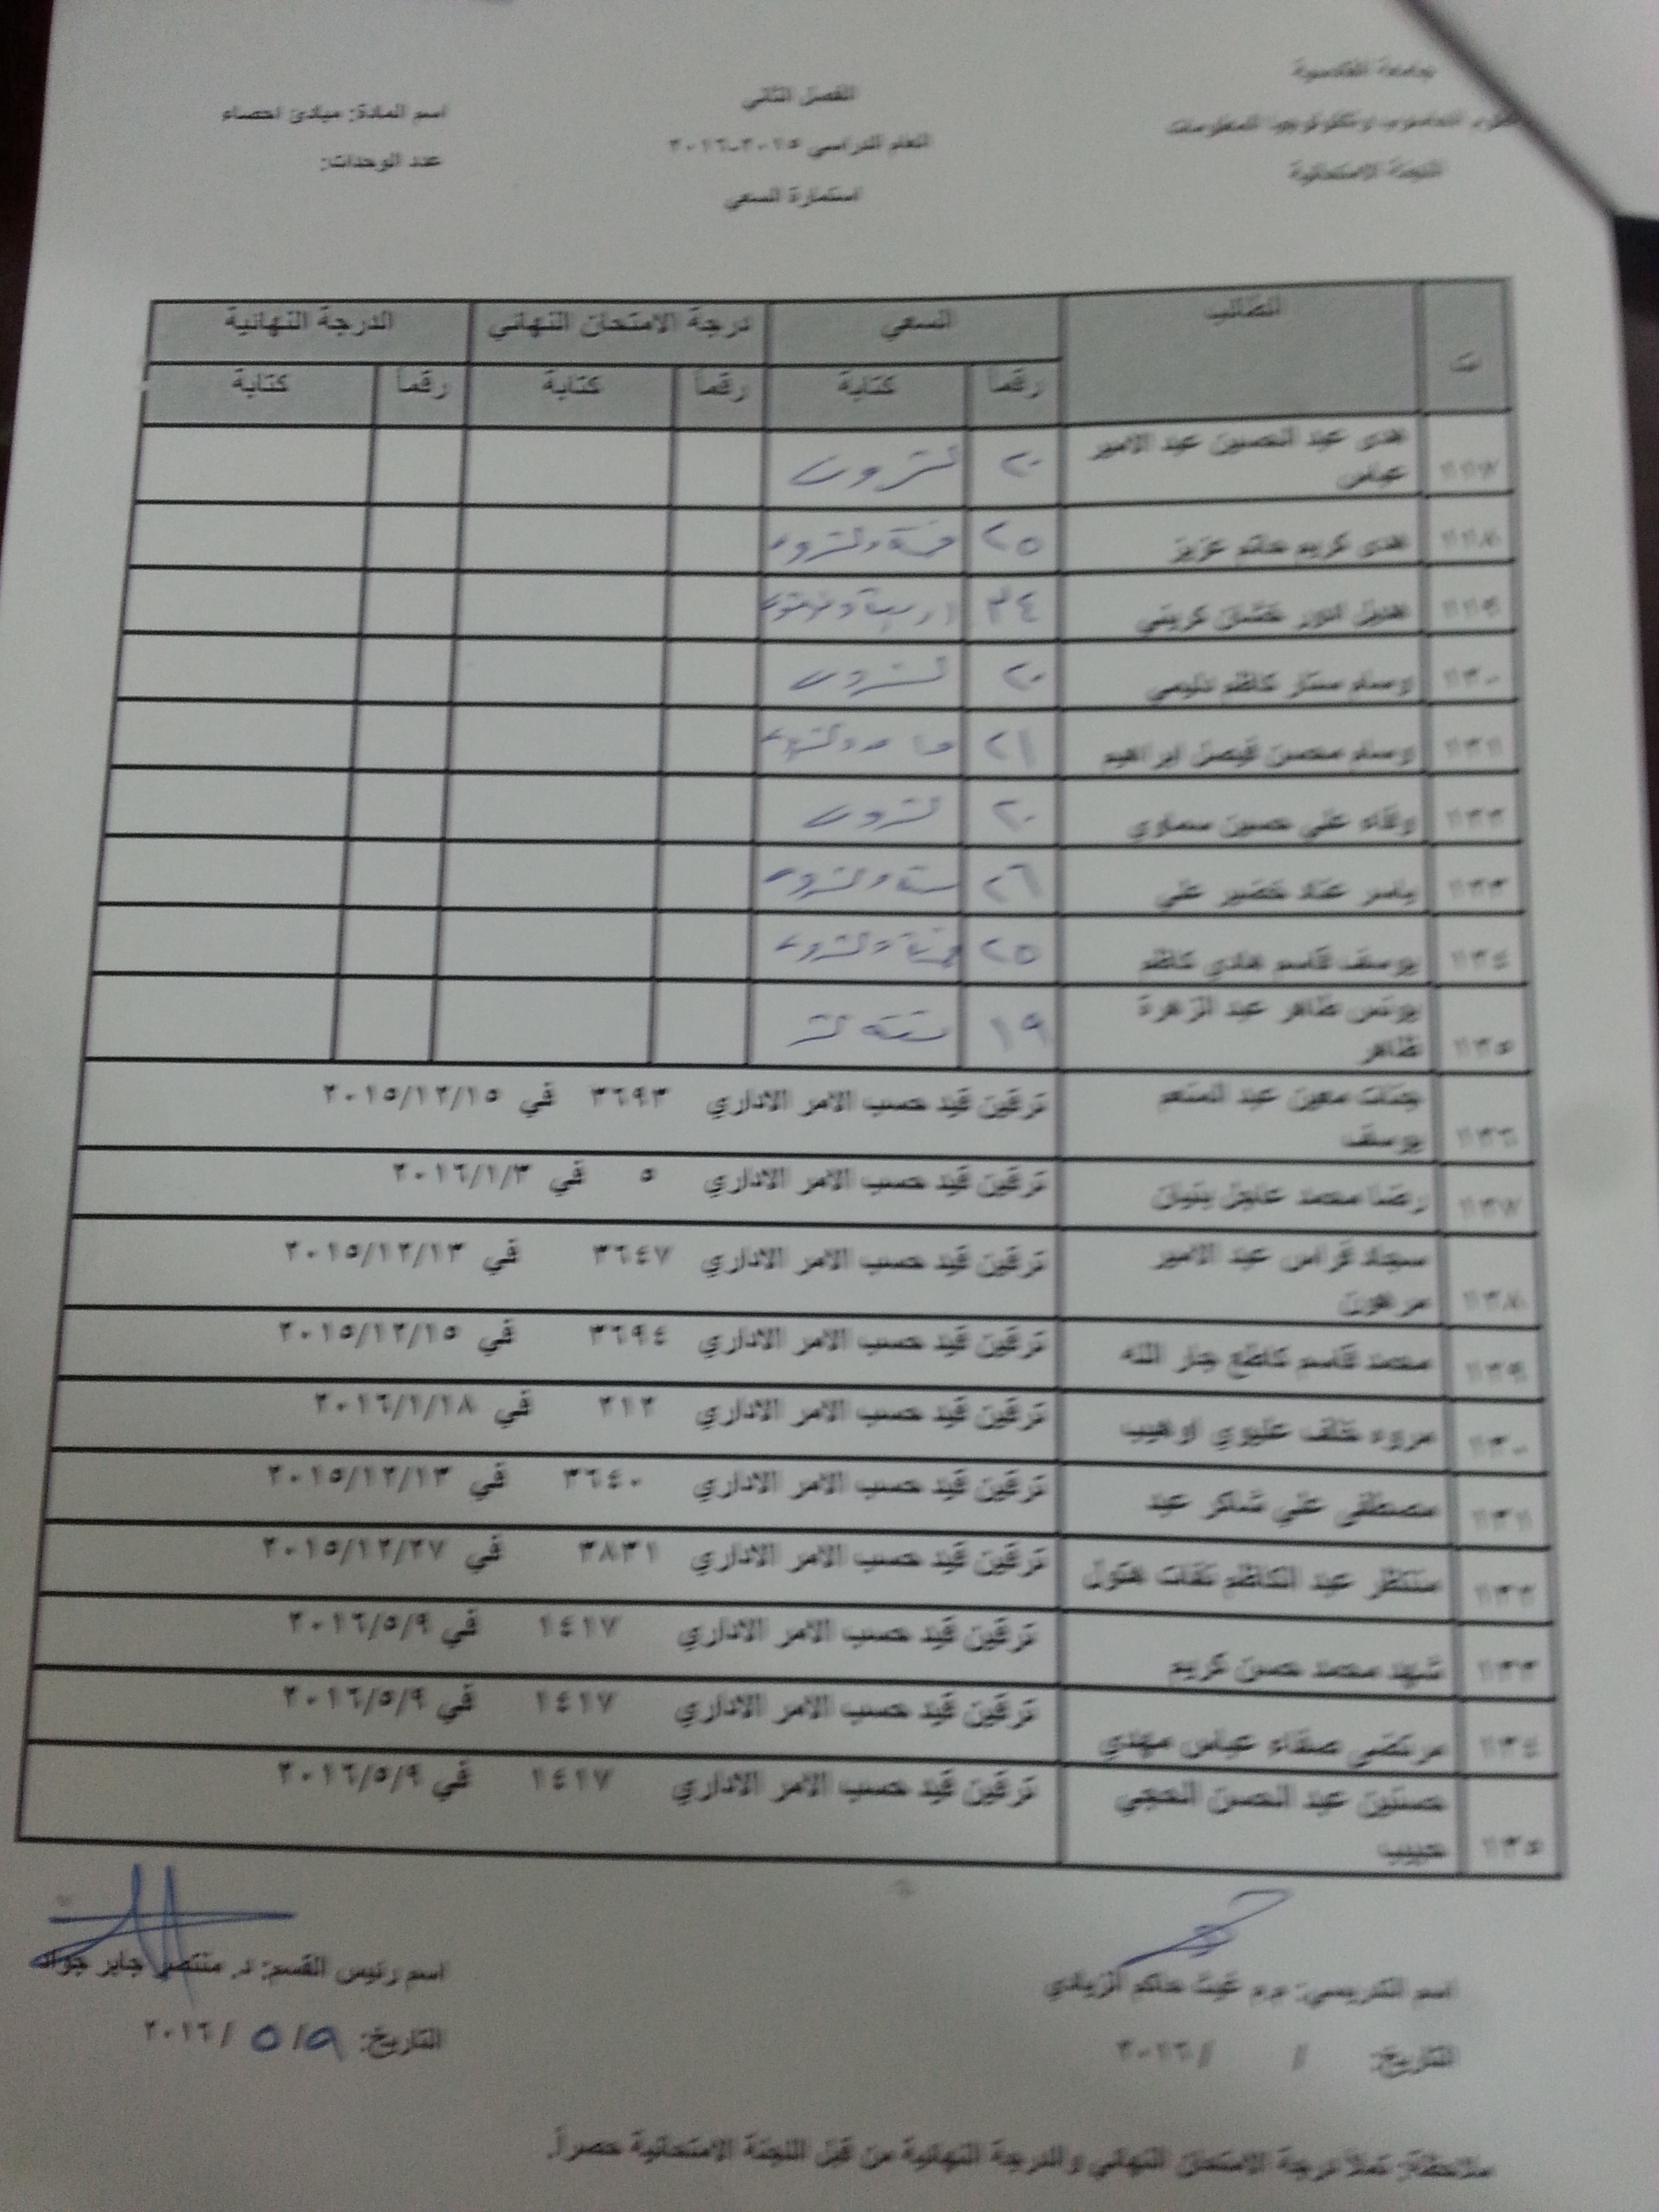 جامعة القادسية
علوم الحاسوب وتكنولوجيا المعلومات
اللجنة الامتحانية
الفصل الثاني
العام الدراسي ٢٠١٥-٢٠١٦
استمارة السعي
اسم المادة: مبادئ احصاء
عدد الوحدات:
ت الطالب السعي درجة الامتحان النهائي الدرجة النهائية
رقماً كتابة رقماً كتابة رقماً كتابة
١١٧ هدى عبد الحسين عبد الامير عباس ٢٠ عشرون
١١٨ هدى كريم حاتم عزيز ٢٥ خمسة وعشرون
١١٩ هديل انور ٣٤ اربعة وثلاثون
١٢٠ وسام ستار كاظم ٢٠ عشرون
١٢١ وسام محسن فيصل ابراهيم ٢١ واحد وعشرون
١٢٢ وفاء علي حسين سماوي ٢٠ عشرون
١٢٣ ياسر عناد خضير علي ٢٦ ستة وعشرون
١٢٤ يوسف قاسم هادي كاظم ٢٥ خمسة وعشرون
١٢٥ يونس ظاهر عبد الزهرة ظاهر ١٩ تسعة عشر
١٢٦ جنات معين عبد المنعم يوسف ترقين قيد حسب الامر الاداري ٣٦٩٣ في ٢٠١٥/١٢/١٥
١٢٧ رضا محمد عاجل بنيان ترقين قيد حسب الامر الاداري ٥ في ٢٠١٦/١/٣
١٢٨ سجاد فراس عبد الامير مرهون ترقين قيد حسب الامر الاداري ٣٦٤٧ في ٢٠١٥/١٢/١٣
١٢٩ محمد قاسم كاطع جار الله ترقين قيد حسب الامر الاداري ٣٦٩٤ في ٢٠١٥/١٢/١٥
١٣٠ مروه خلف عليوي اوهيب ترقين قيد حسب الامر الاداري ٢١٢ في ٢٠١٦/١/١٨
١٣١ مصطفى علي شاكر عبد ترقين قيد حسب الامر الاداري ٣٦٤٠ في ٢٠١٥/١٢/١٣
١٣٢ منتظر عبد الكاظم ترقين قيد حسب الامر الاداري ٣٨٣١ في ٢٠١٥/١٢/٢٧
١٣٣ شهد محمد حسن كريم ترقين قيد حسب الامر الاداري ١٤١٧ في ٢٠١٦/٥/٩
١٣٤ مرتضى صفاء عباس مهدي ترقين قيد حسب الامر الاداري ١٤١٧ في ٢٠١٦/٥/٩
١٣٥ حسنين عبد الحسن الحجي حبيب ترقين قيد حسب الامر الاداري ١٤١٧ في ٢٠١٦/٥/٩
اسم التدريسي: م.م غيث حاكم الزيادي
التاريخ: / /٢٠١٦
اسم رئيس القسم: د. منتصر جابر جواد
التاريخ: ٥/٩ /٢٠١٦
ملاحظة: تملأ درجة الامتحان النهائي والدرجة النهائية من قبل اللجنة الامتحانية حصراً.